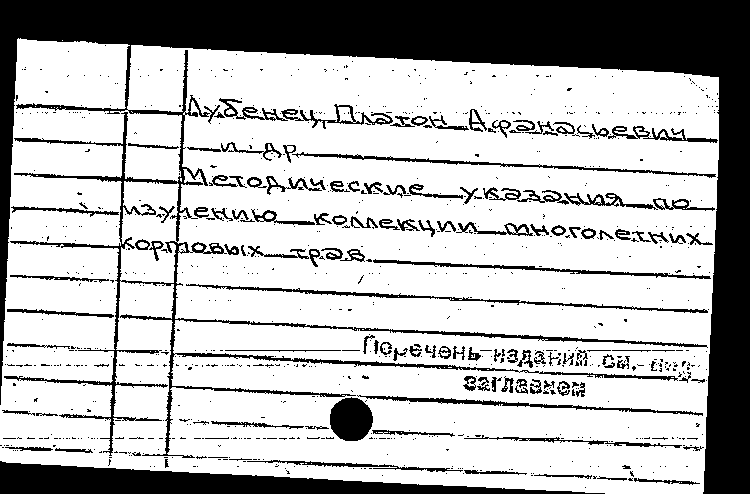 Лубенец, Платон Афанасьевич
и др.
Методические указания по
изучению коллекции многолетних
кормовых трав
Перечень изданий см. под
заглавием